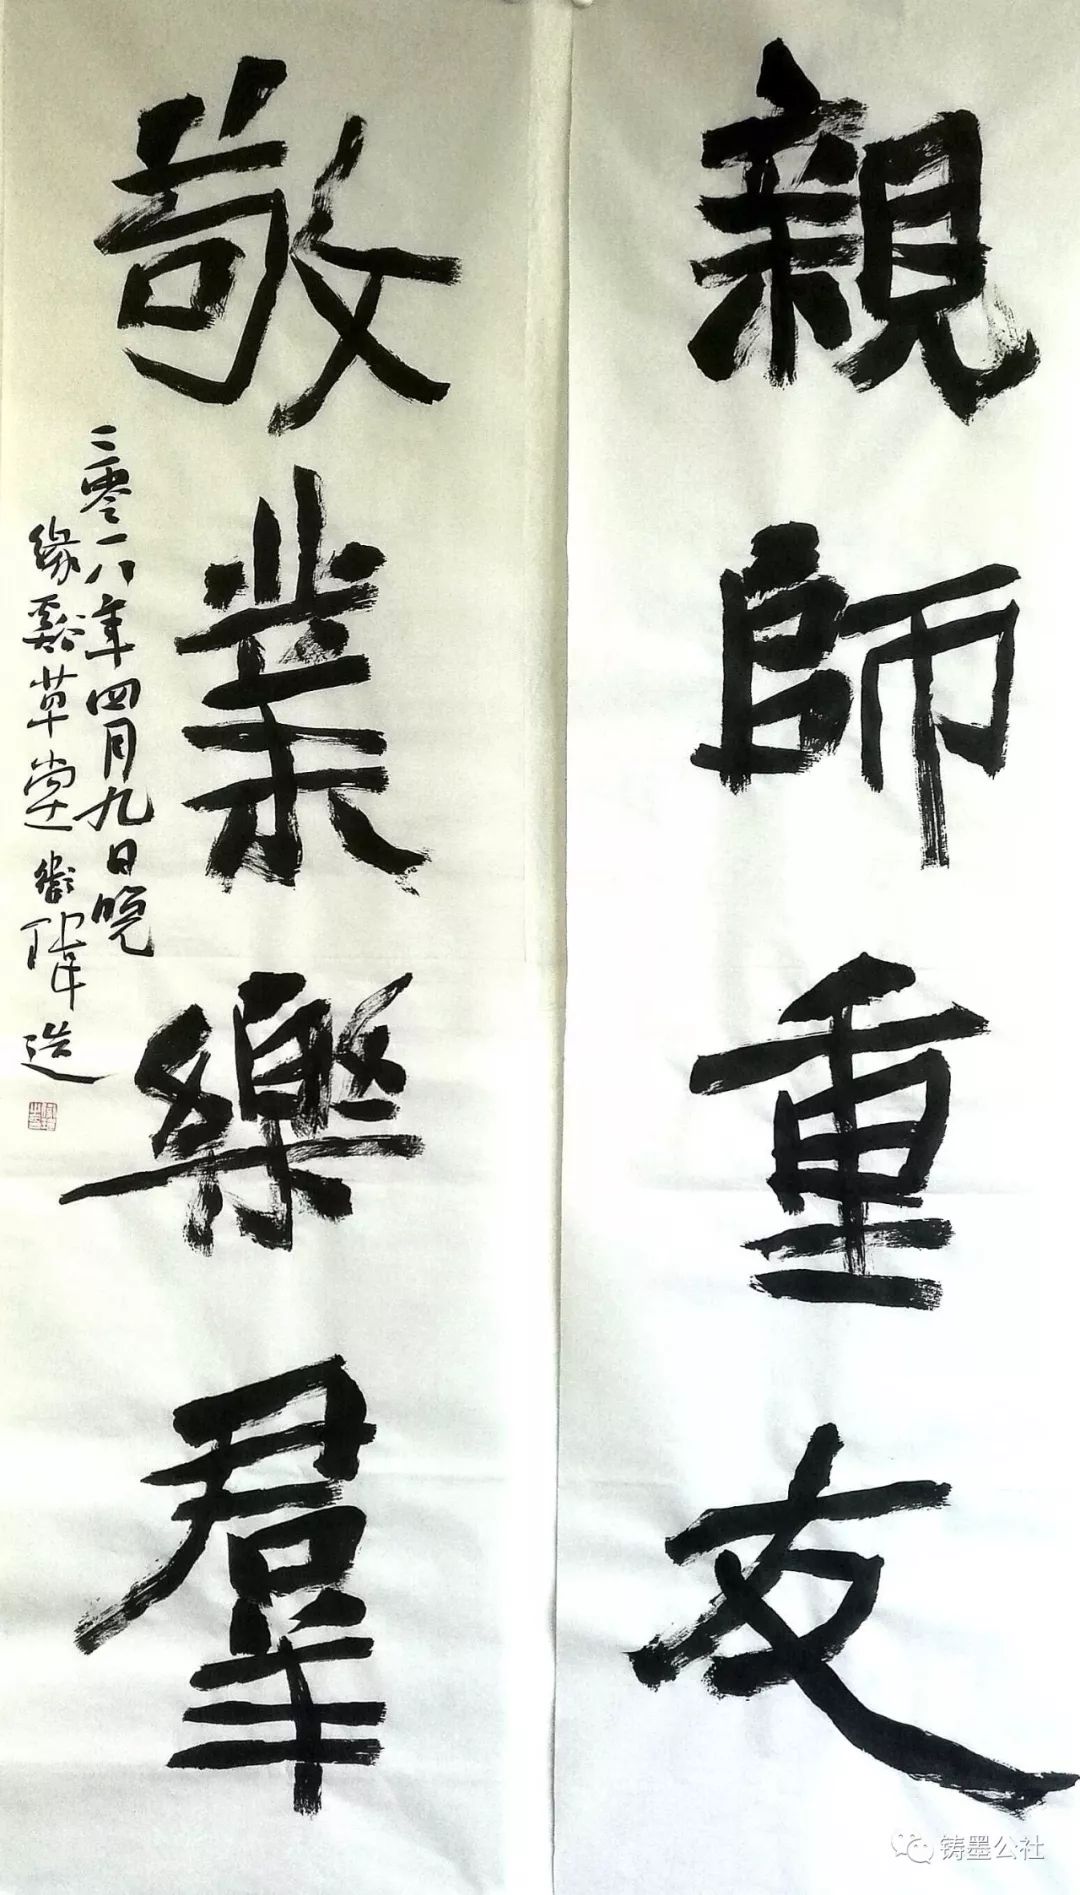 親師重友
敬業樂羣
二零一八年四月九日晚
緣谿草堂 偉造
铸墨公社